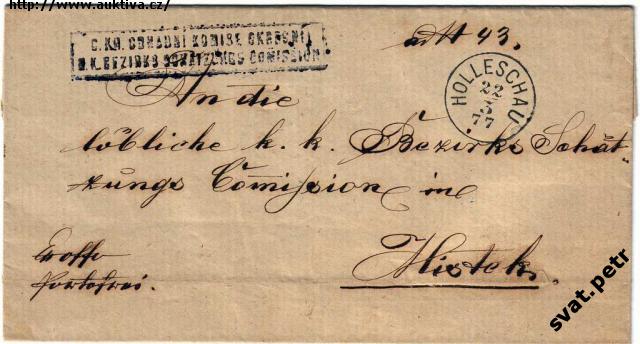 http://www.auktiva.cz/
C.KR. ODHADNÍ KOMISE OKRESNÍ
K.K. BEZIRKS SCHÄTZUNGS COMISSION
43.
HOLLESCHAU
22
3
77
An die
löbliche k. k. Bezirks Schät-
zungs Com̄ission in
Mistek.
Portofrei.
svat.petr